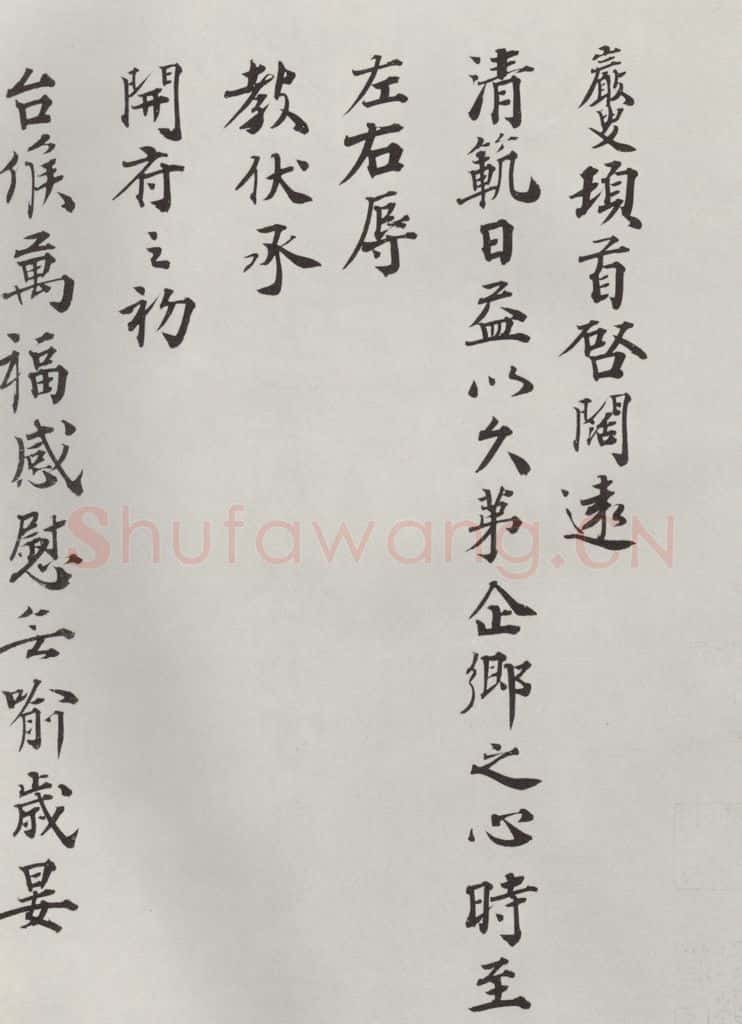 巖叟頓首啓闊遠
清範日益以久第企鄉之心時至
左右辱
教伏承
開府之初
台候萬福感慰無喻歲晏
Shufawang.CN